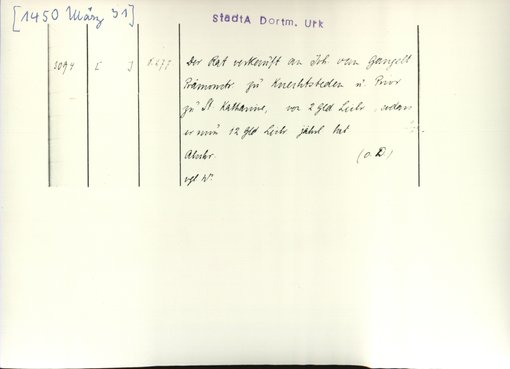 [1450 März 31]
StadtA Dortm. Urk
2094 [ ]
Der Rat verkauft an Joh van Gangelt
Prämonstr zu Knechtsteden u. Prior
zu St. Katharine, von 2 Gld Leibr, sodass
er nun 12 Gld Leibr jährl hat
Abschr.
(o. D)
vgl W.